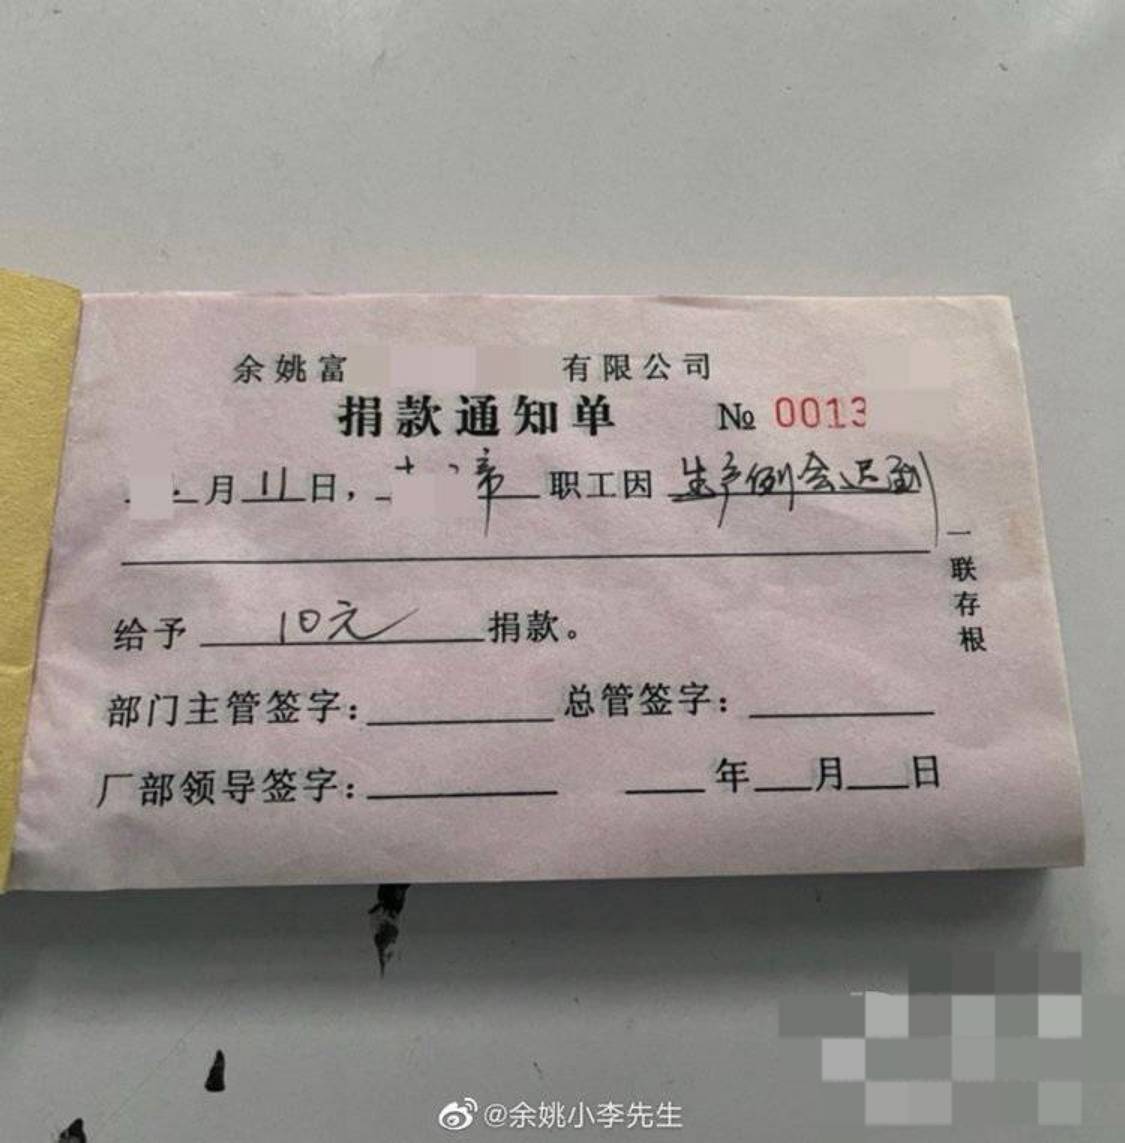 余姚富 有限公司
捐款通知单 № 0013
月11日, 职工因 生产例会迟到
一联存根
给予 10元 捐款。
部门主管签字: 总管签字:
厂部领导签字: 年 月 日
@余姚小李先生